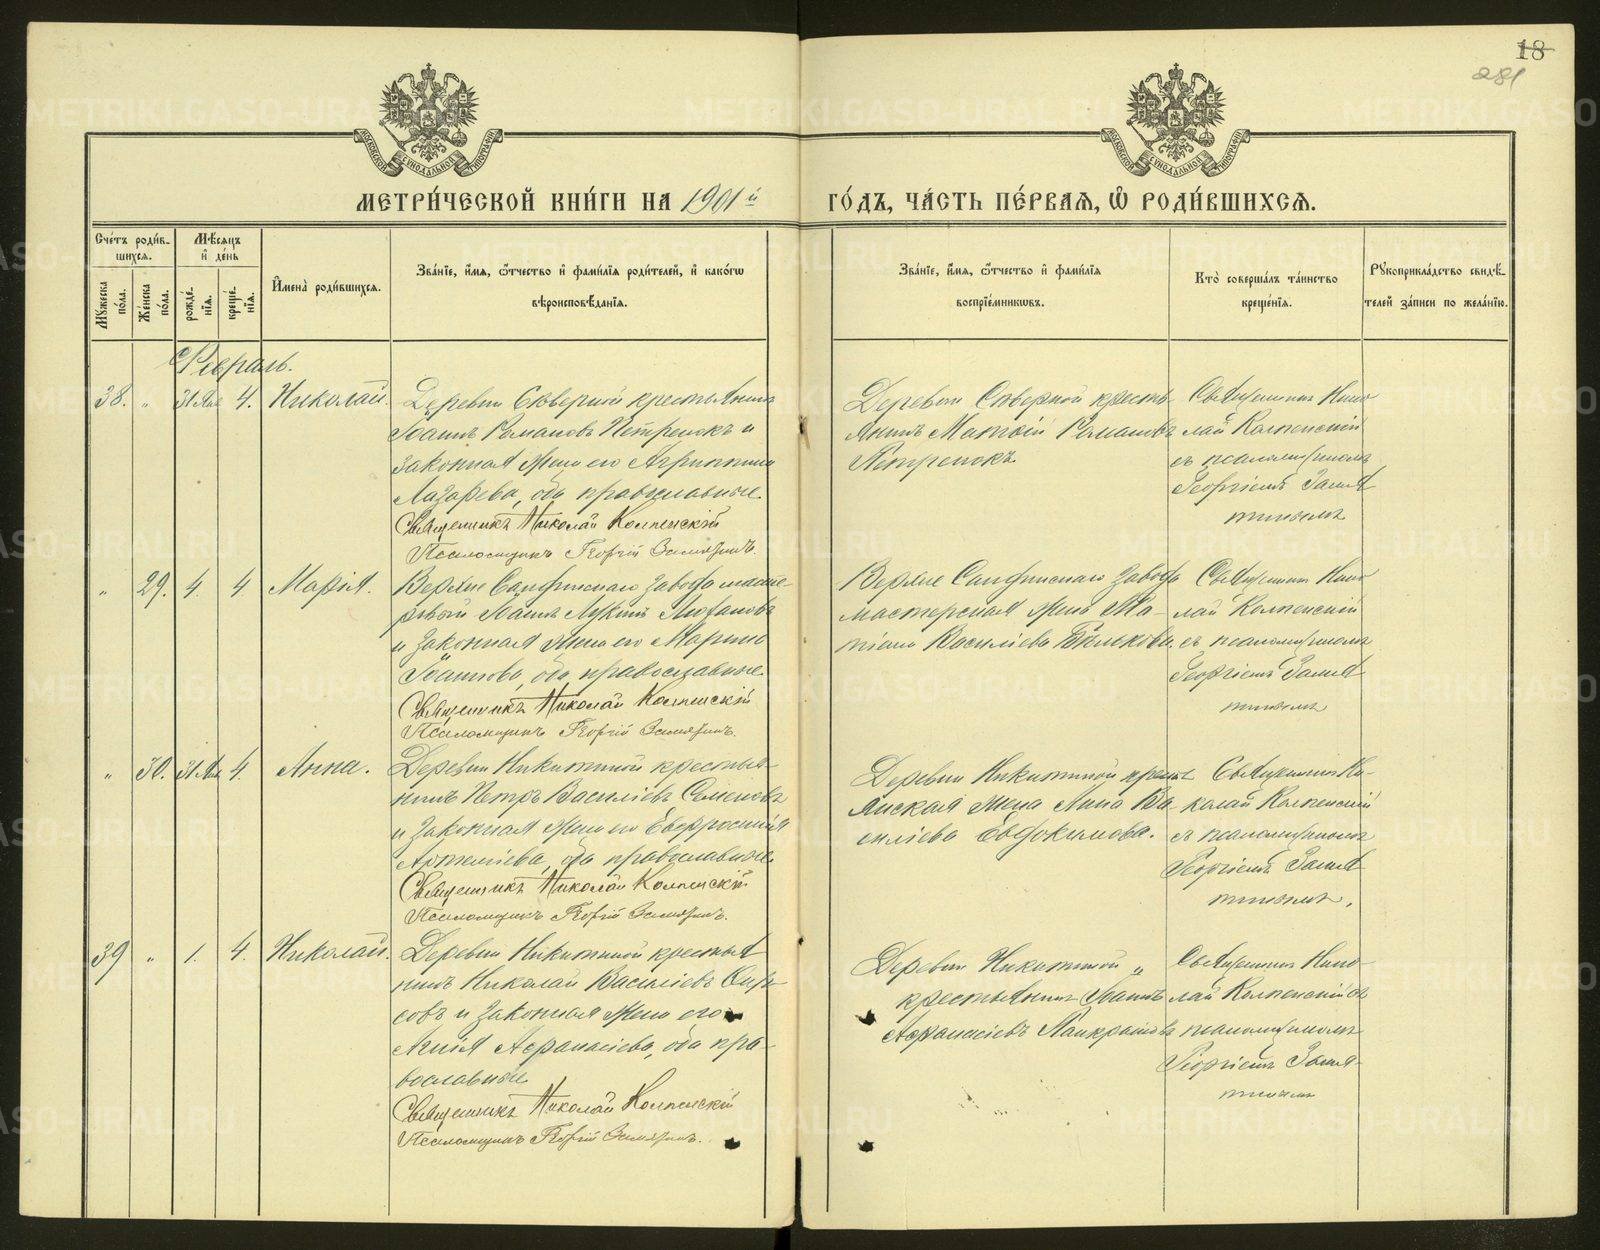 18
281
МОСКОВСКОЙ СУНОДАЛЬНОЙ ТИПОГРАФІИ
МОСКОВСКОЙ СУНОДАЛЬНОЙ ТИПОГРАФІИ
МЕТРИ́ЧЕСКОЙ КНИ́ГИ НА 1901 й
ГО́ДЪ, ЧА́СТЬ ПЕ́РВАЯ, Ѽ РОДИ́ВШИХСЯ.
Сче́тъ роди́в-
шихся.
Мѣ́сяцъ
и҆ де́нь
Мꙋжеска по́ла.
Же́нска по́ла.
рожде́-
нїя.
креще́-
нїя.
И҆мена̀ роди́вшихся.
Зва́нїе, и҆́мя, ѻ҆́тчество и҆ фами́лїя роди́телей, и҆ како́гѡ
вѣроисповѣ́данїя.
Зва́нїе, и҆́мя, ѻ҆́тчество и҆ фами́лїя
воспрїе́мниковъ.
Кто̀ соверша́лъ та́инство
креще́нїя.
Рꙋкоприкла́дство свидѣ́-
телей за́писи по жела́нїю.
Февраль.
38. " 31 Янв 4. Николай.
Деревни Сѣверной крестьянинъ
Іоаннъ Романовъ Петренокъ и
законная жена его Агриппина
Лазарева, оба православные.
Священникъ Николай Колпенскій
Псаломщикъ Георгій Замятинъ.
Деревни Сѣверной кресть-
янинъ Матвій Романовъ
Петренокъ.
Священникъ Нико-
лай Колпенскій
съ псаломщикомъ
Георгіемъ Замя-
тинымъ
" 29. 4. 4 Марія.
Верхне Сапфирскаго завода масте-
ровой Іоаннъ Лукинъ
и законная жена его Марина
Іоаннова, оба православные.
Священникъ Николай Колпенскій
Псаломщикъ Георгій Замятинъ.
Верхне Сапфирскаго завода
мастерская жена Та-
тіана Василіева Бѣлькова.
Священникъ Нико-
лай Колпенскій
съ псаломщикомъ
Георгіемъ Замя
тинымъ
" 30. 31 Янв 4. Анна.
Деревни Никитиной крестья-
нинъ Петръ Василіевъ Семеновъ
и законная жена его Евфросинія
Артеміева, оба православные.
Священникъ Николай Колпенскій
Псаломщикъ Георгій Замятинъ.
Деревни Никитиной кресть
янская жена Анна Ва
силіева Евдокимова.
Священникъ Ни-
колай Колпенскій
съ псаломщикомъ
Георгіемъ Замя
тинымъ.
39 " 1. 4. Николай.
Деревни Никитиной крестья
нинъ Николай Василіевъ
совъ и законная жена его
Агнія Афанасіева, оба пра-
вославные
Священникъ Николай Колпенскій
Псаломщикъ Георгій Замятинъ.
Деревни Никитиной "
крестьянинъ Іоаннъ
Афанасіевъ Панкратовъ
Священникъ Нико-
лай Колпенскій съ
псаломщикомъ
Георгіемъ Замя-
тинымъ
METRIKI.GASO-URAL.RU